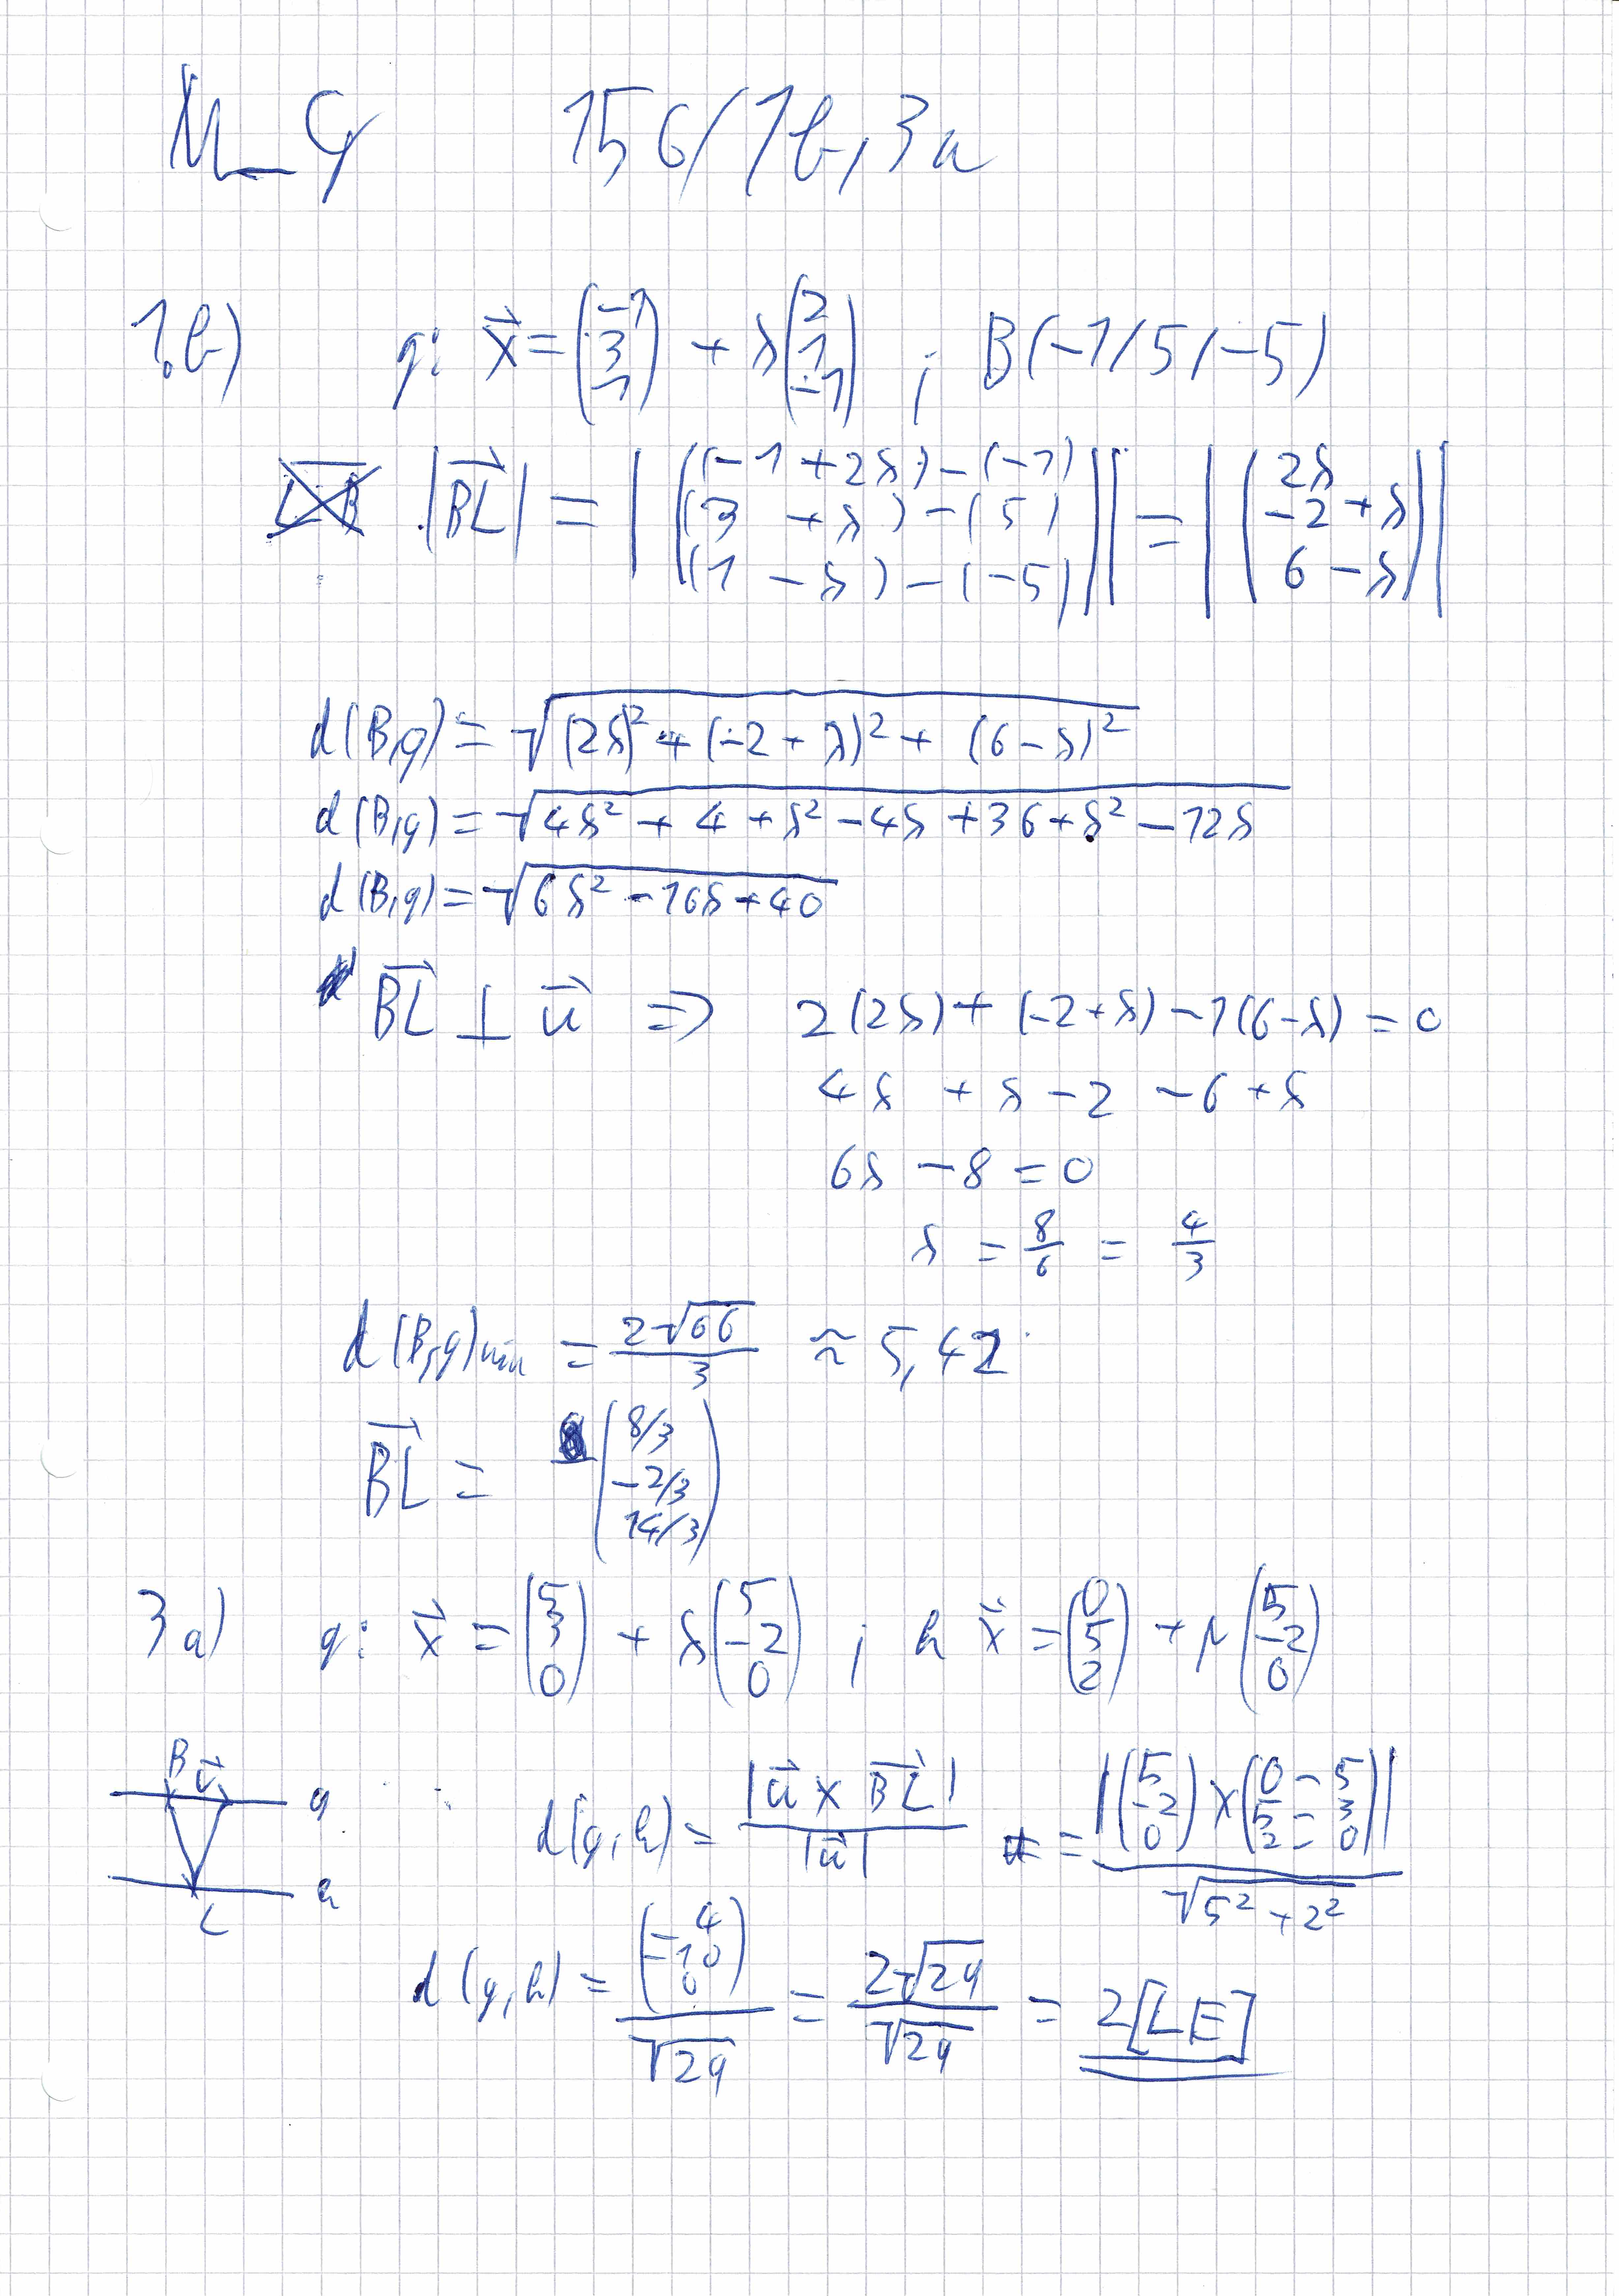 M_G 156/1b, 3a
1.b) g: x⃗ = (-1 3 1) + λ(2 1 -1) ; B(-1/5/-5)
|BL⃗| = |((-1+2λ)-(-1) (3+λ)-(5) (1-λ)-(-5))| = |(2λ -2+λ 6-λ)|
d(B,g) = √((2λ)² + (-2+λ)² + (6-λ)²)
d(B,g) = √(4λ² + 4 + λ² - 4λ + 36 + λ² - 12λ)
d(B,g) = √(6λ² - 16λ + 40)
BL⃗ ⊥ u⃗ ⇒ 2(2λ) + (-2+λ) - 1(6-λ) = 0
4λ + λ - 2 - 6 + λ
6λ - 8 = 0
λ = 8/6 = 4/3
d(B,g)min = 2√66/3 ≈ 5,42
BL⃗ = (8/3 -2/3 14/3)
3a) g: x⃗ = (5 3 0) + λ(5 -2 0) ; h x⃗ = (0 5 2) + μ(5 -2 0)
B u⃗ g
h
L
d(g,h) = |u⃗ × BL⃗| / |u⃗| = |(5 -2 0) × (0-5 5-3 2-0)| / √(5² + 2²)
d(g,h) = (-4 -10 0) / √29 = 2√29 / √29 = 2[LE]